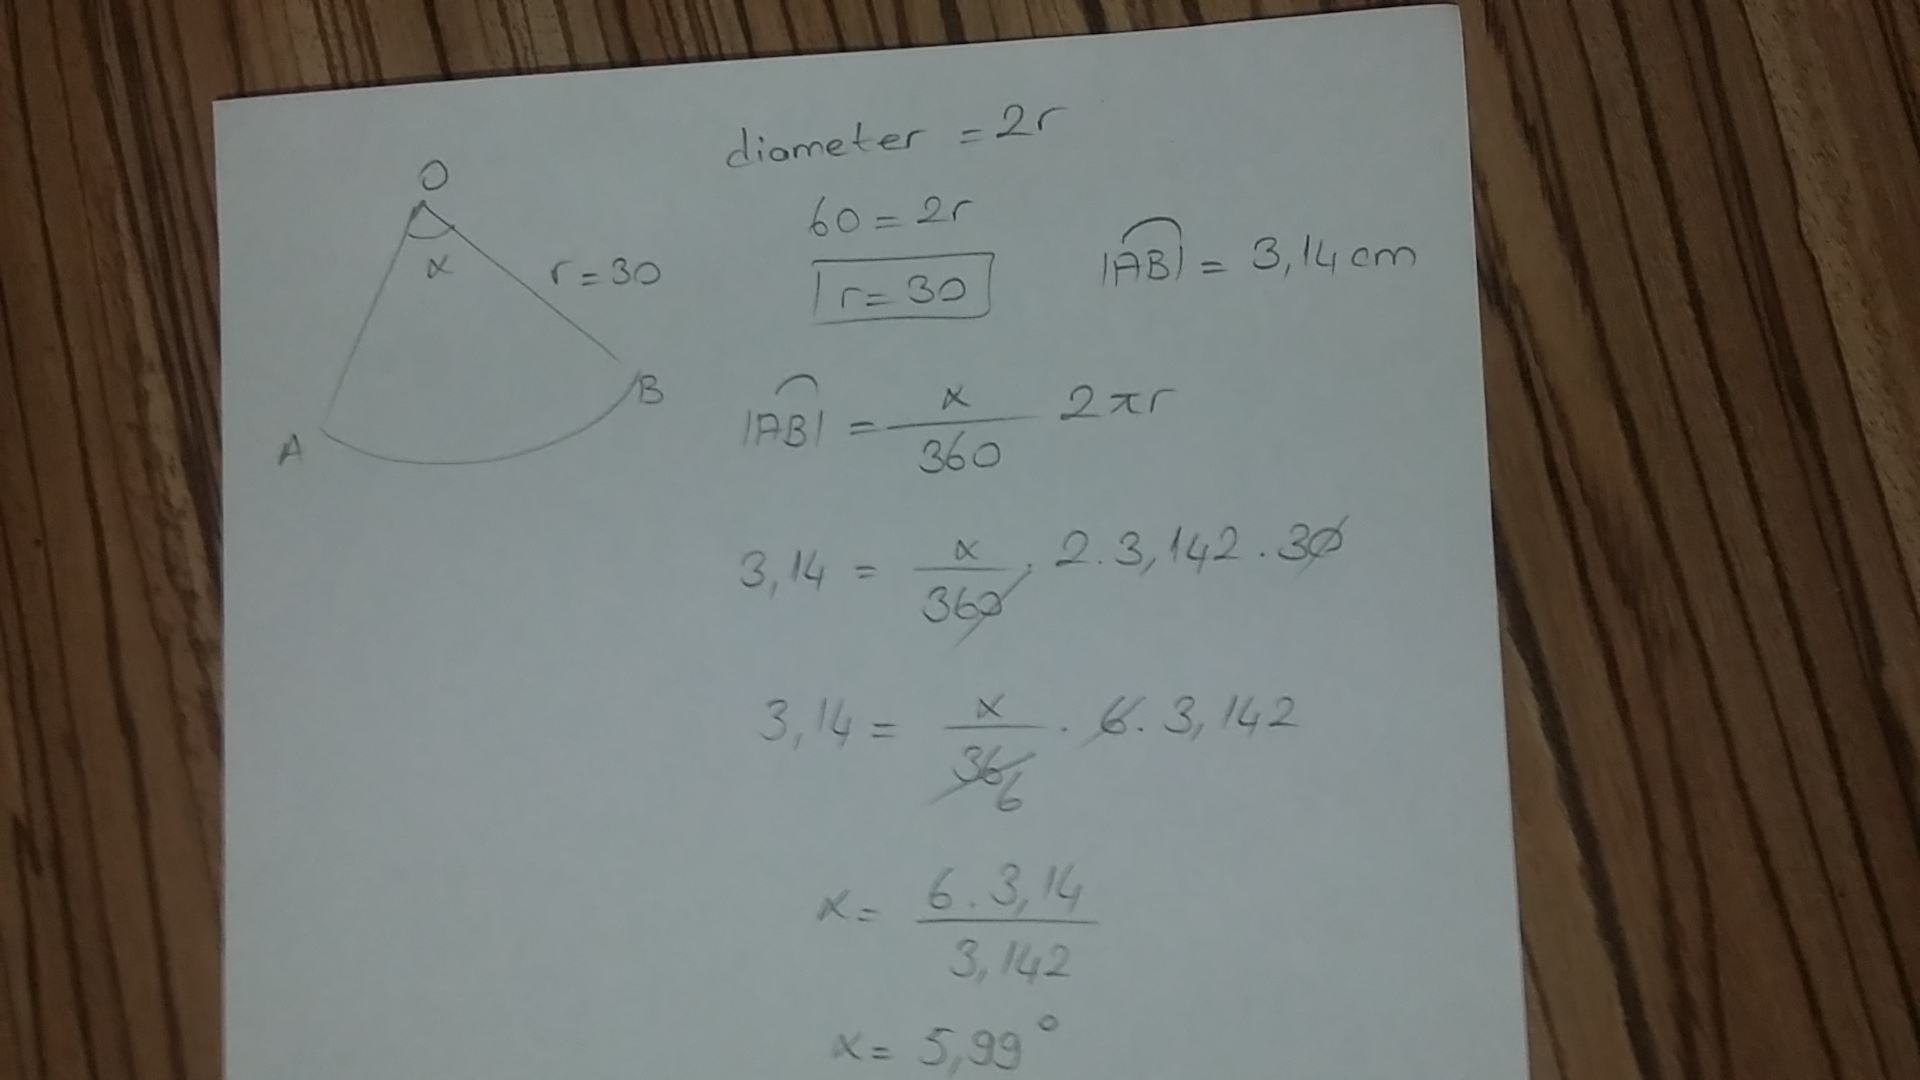 O
α
r = 30
A
B
diameter = 2r
60 = 2r
r = 30
|AB| = 3,14 cm
|AB| = α/360 2πr
3,14 = α/360 . 2 . 3,142 . 30
3,14 = α/36 6 . 6 . 3,142
α = 6 . 3,14 / 3,142
α = 5,99°